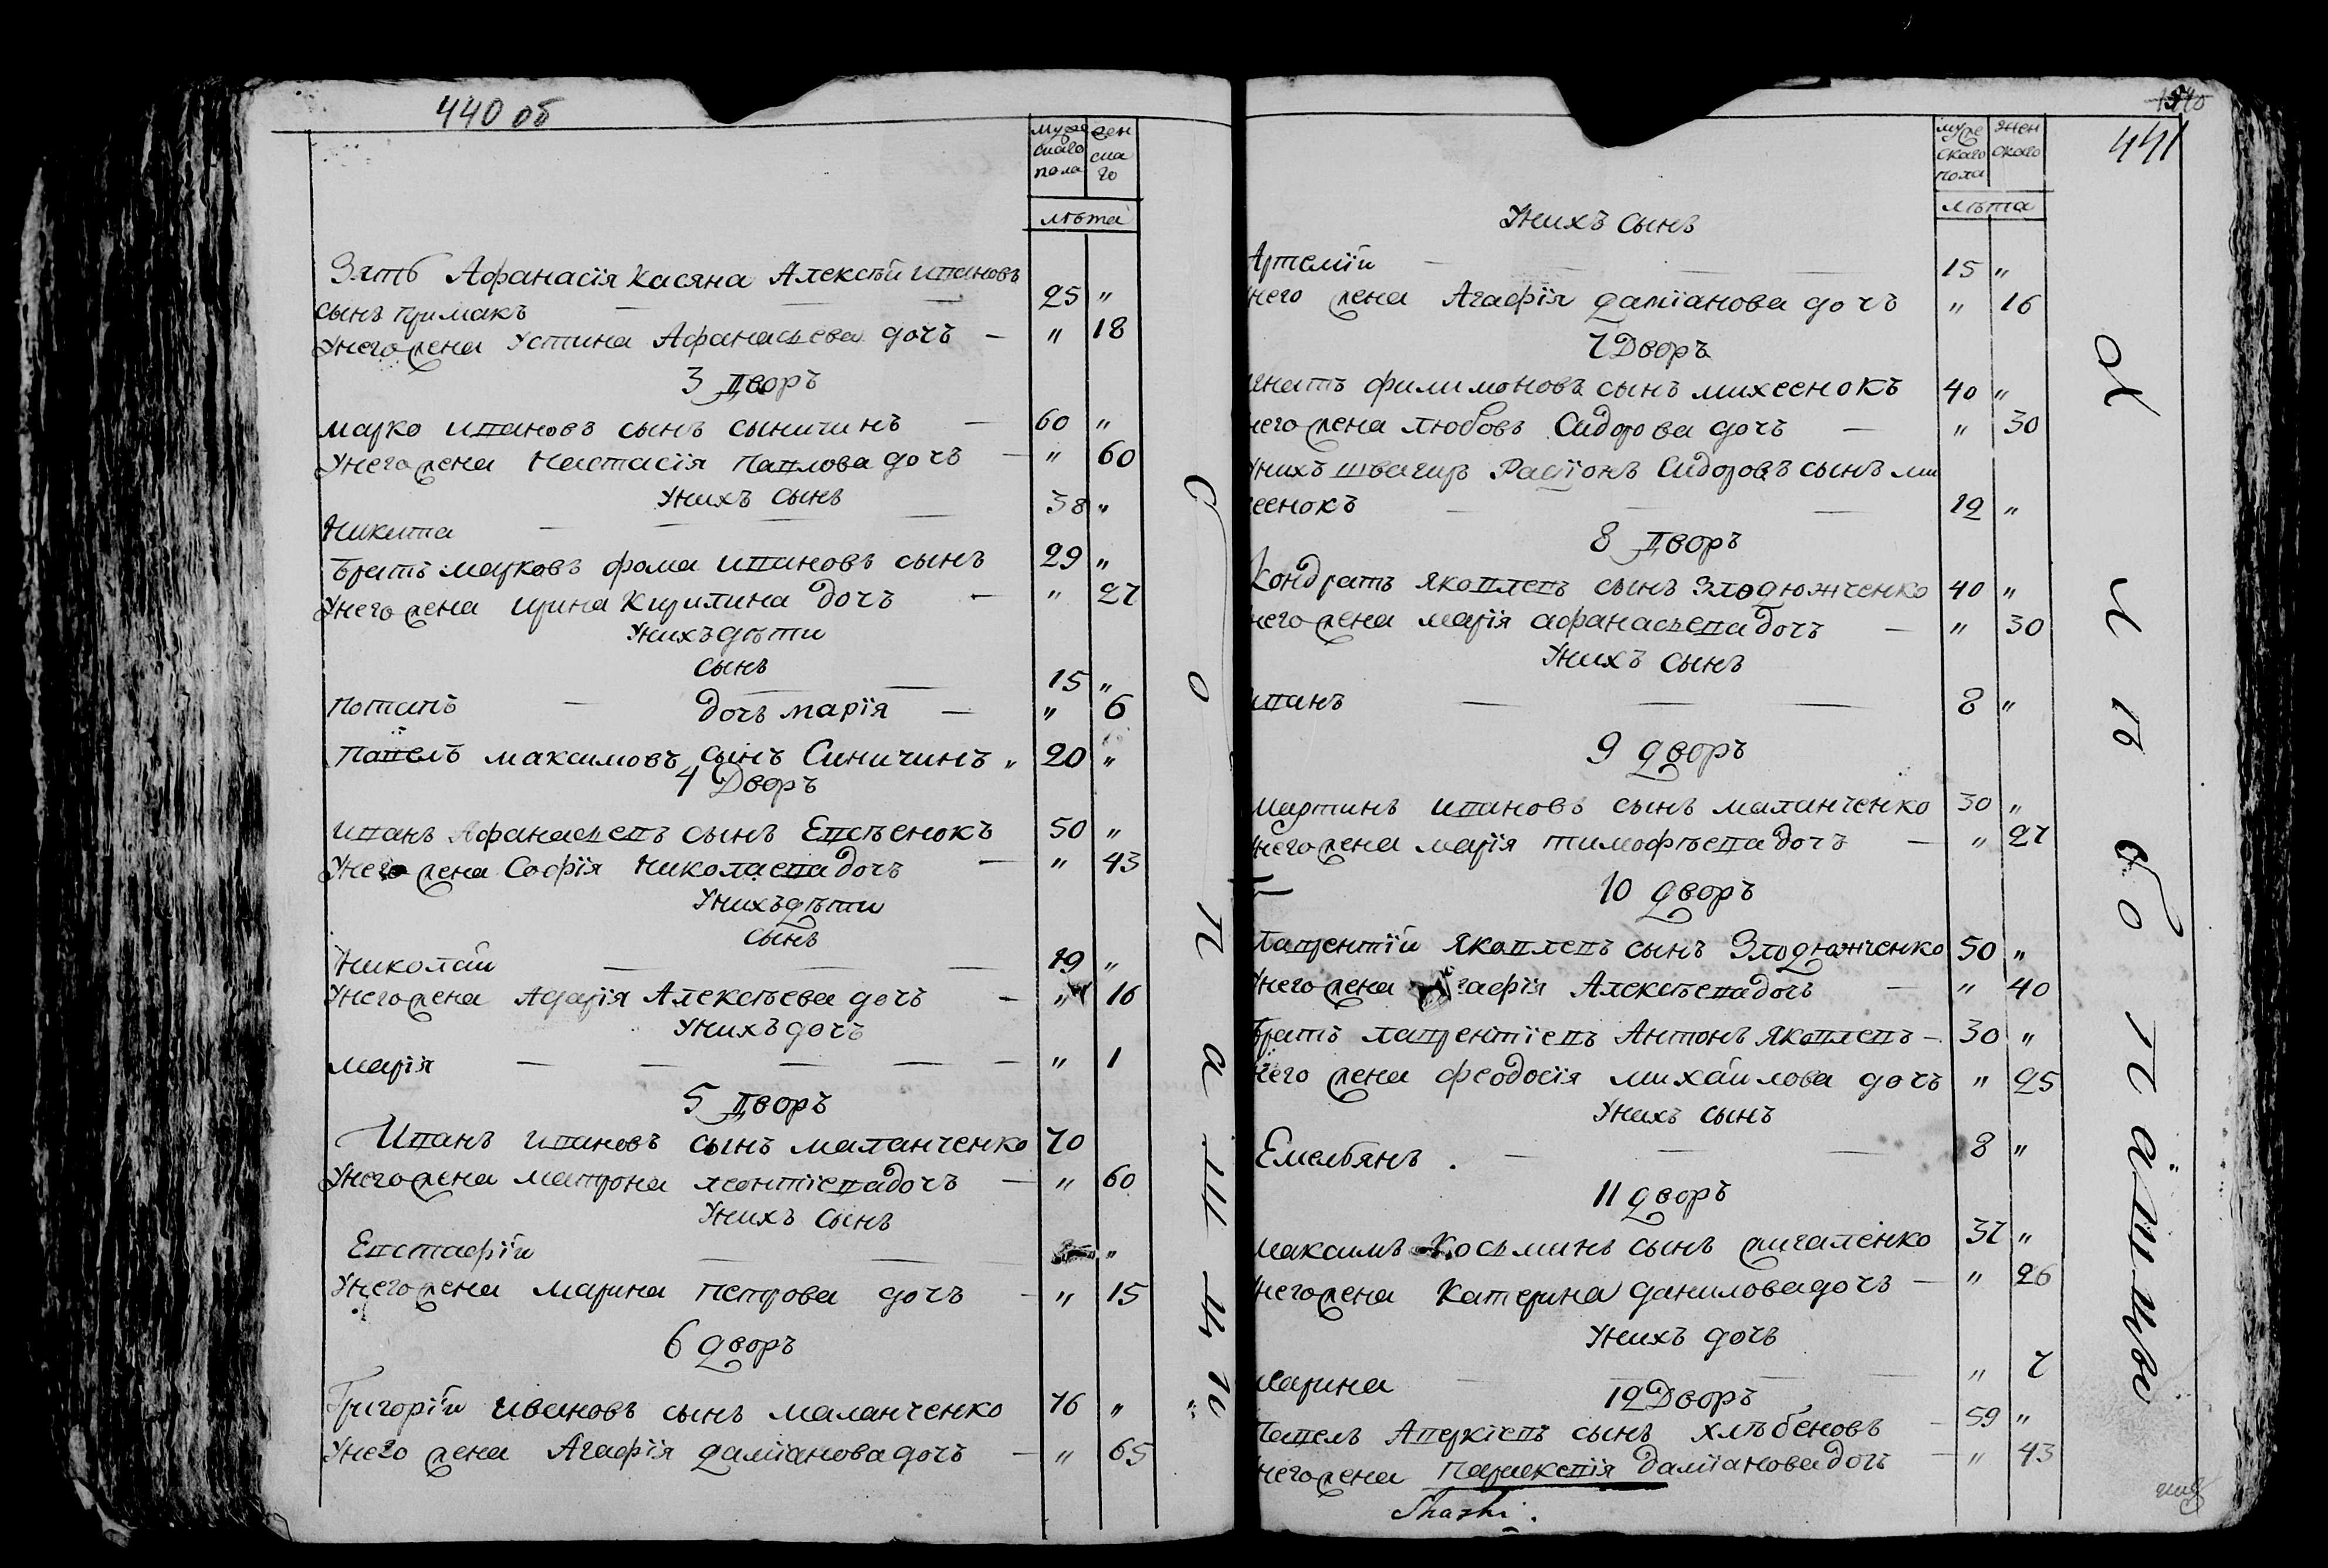 440 об
муже
скаго
пола
жен
ска
го
лѣта
Зять Афанасія Касяна Алексѣй ивановъ
сынъ примакъ — — — 25 „
Унего жена Устина Афанасьева дочь — „ 18
3 дворъ
марко ивановъ сынъ сыничинъ — 60 „
Унего жена Настасія павлова дочь — „ 60
Унихъ сынъ
Никита — — — — 38 „
братъ марковъ фома ивановъ сынъ 29 „
Унего жена ирина Кирилина дочь — „ 27
Унихъ дѣти
сынъ
потапъ — — — 15 „
дочь марія — „ 6
павелъ максимовъ сынъ Синичинъ „ 20 „
4 Дворъ
иванъ Афанасьевъ сынъ Евсѣенокъ 50 „
Унего жена Софія Николаева дочь — „ 43
Унихъ дѣти
сынъ
Николай — — — 19 „
Унего жена Адарія Алексѣева дочь — „ 16
Унихъ дочь
марія — — — — — „ 1
5 дворъ
Иванъ ивановъ сынъ маланченко 70
Унего жена матрона леонтіева дочь — „ 60
Унихъ сынъ
Евстафій — — „
Унего жена марина петрова дочь — „ 15
6 дворъ
Григорій ивановъ сынъ маланченко 76 „
Унего жена Агафія даміанова дочь — „ 65
441
муже
скаго
пола
жен
скаго
лѣта
Унихъ сынъ
Артемій — — — — 15 „
него жена Агафія даміанова дочь „ 16
7 Дворъ
гнатъ филимоновъ сынъ михеенокъ 40 „
него жена любовь Сидорова дочь — „ 30
Унихъ швагиръ Радіонъ Сидоровъ сынъ ми
еенокъ — — — 12 „
8 дворъ
Кондратъ яковлевъ сынъ Злодюжченко 40 „
него жена марія афанасьева дочь — „ 30
Унихъ сынъ
иванъ — — — 8 „
9 дворъ
мартинъ ивановъ сынъ маланченко 30 „
него жена марія тимофѣева дочь — „ 27
10 дворъ
Лаврентій яковлевъ сынъ Злодюжченко 50 „
Унего жена Агафія Алексѣева дочь — „ 40
братъ лаврентіевъ Антонъ яковлевъ — 30 „
него жена феодосія михайлова дочь „ 25
Унихъ сынъ
Емельянъ . — — — 8 „
11 дворъ
максимъ Косьминъ сынъ жигаленко 37 „
него жена Катерина данилова дочь — „ 26
Унихъ дочь
марина — — — — „ 7
12 Дворъ
павелъ Аверкіевъ сынъ хлѣбеновъ — 59 „
него жена параскевія Даміанова дочь — „ 43